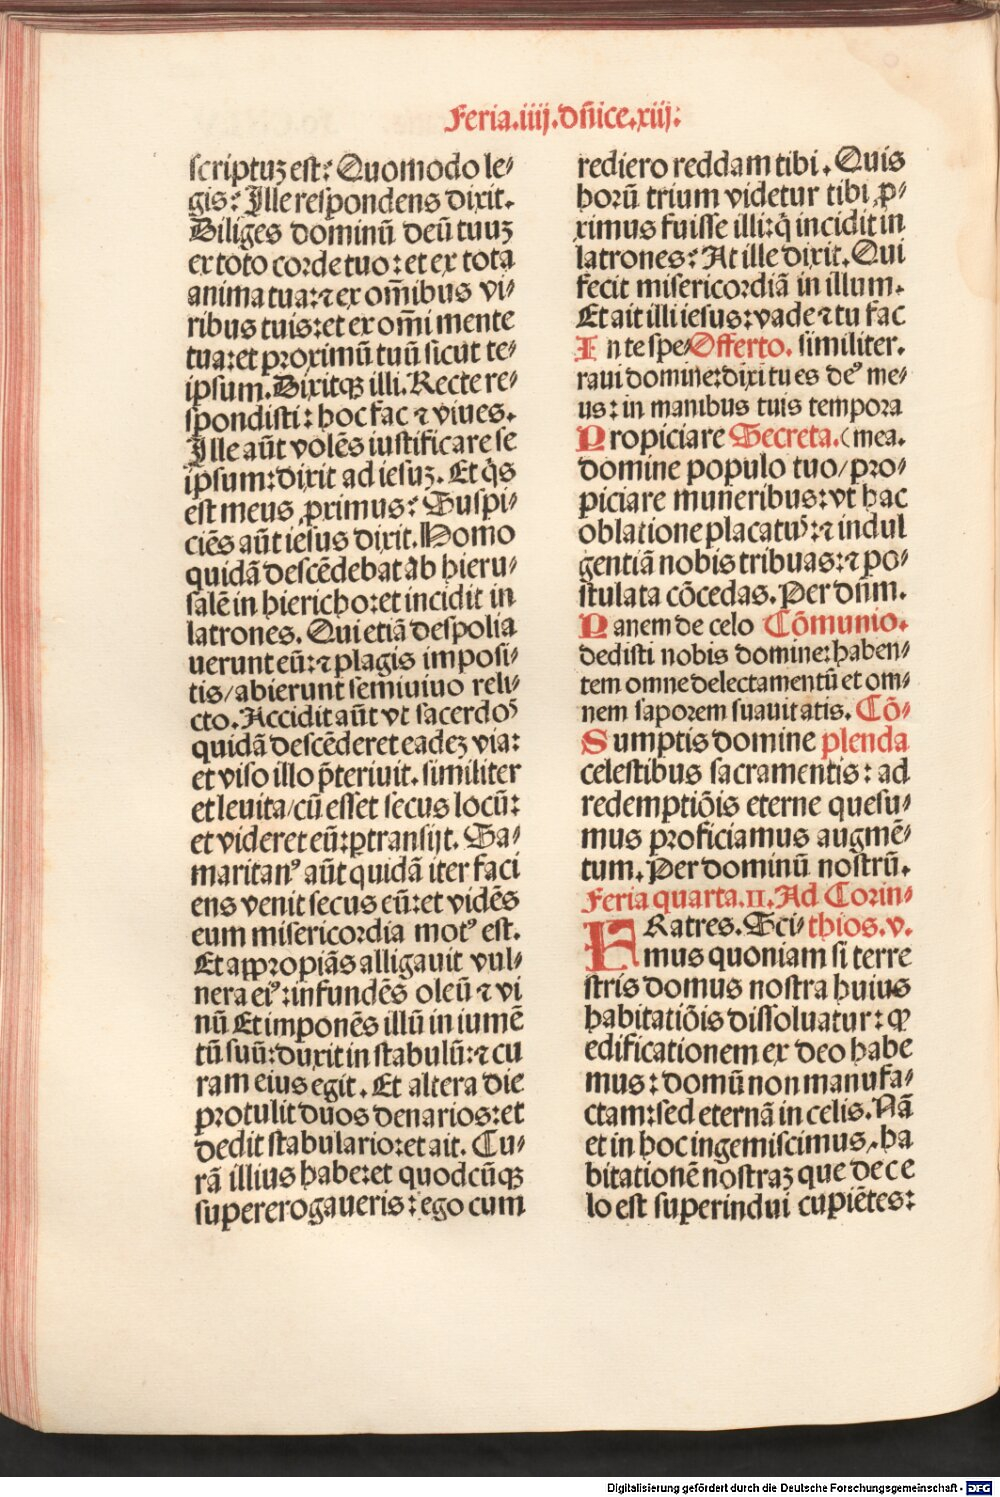 Feria.iiij.dñice.xiij:
scriptuꝫ est: Quomodo le⸗
gis: Ille respondens dixit.
Diliges dominũ deũ tuuꝫ
ex toto corde tuo: et ex tota
anima tua: ⁊ ex om̃ibus vi⸗
ribus tuis: et ex om̃i mente
tua: et proximũ tuũ sicut te⸗
ipsum. Dixitqꝫ illi. Recte re⸗
spondisti: hoc fac ⁊ viues.
Ille aũt volẽs iustificare se
ipsum: dixit ad iesuꝫ. Et q̃s
est meus ꝓximus: Suspi⸗
ciẽs aũt iesus dixit. Homo
quidã descẽdebat ab hieru⸗
salẽ in hiericho: et incidit in
latrones. Qui etiã despolia
uerunt eũ: ⁊ plagis imposi⸗
tis/ abierunt semiuiuo reli⸗
cto. Accidit aũt vt sacerdoꝰ
quidã descẽderet eadeꝫ via:
et viso illo p̃teriuit. similiter
et leuita/ cũ esset secus locũ:
et videret eũ: ꝑtransijt. Sa⸗
maritanꝰ aũt quidã iter faci
ens venit secus eũ: et vidẽs
eum misericordia motꝰ est.
Et appropiãs alligauit vul⸗
nera eiꝰ: infundẽs oleũ ⁊ vi
nũ Et imponẽs illũ in iumẽ
tũ suũ: duxit in stabulũ: ⁊ cu
ram eius egit. Et altera die
protulit duos denarios: et
dedit stabulario: et ait. Cu⸗
rã illius habe: et quodcũqꝫ
supererogaueris: ego cum
rediero reddam tibi. Quis
horũ trium videtur tibi ꝓ⸗
ximus fuisse illi: q̃ incidit in
latrones: At ille dixit. Qui
fecit misericordiã in illum.
Et ait illi iesus: vade ⁊ tu fac
In te spe⸗ Offerto. similiter.
raui domine: dixi tu es deꝰ me⸗
us: in manibus tuis tempora
Propiciare Secreta. (mea.
domine populo tuo/ pro⸗
piciare muneribus: vt hac
oblatione placatꝰ: ⁊ indul
gentiã nobis tribuas: ⁊ po⸗
stulata cõcedas. Per dñm.
Panem de celo Cõmunio.
dedisti nobis domine: haben⸗
tem omne delectamentũ et om⸗
nem saporem suauitatis. Cõ⸗
Sumptis domine plenda
celestibus sacramentis: ad
redemptiõis eterne quesu⸗
mus proficiamus augmẽ⸗
tum. Per dominũ nostrũ.
Feria quarta. II. Ad Corin⸗
FRatres. Sci⸗ thios. v.
mus quoniam si terre
stris domus nostra huius
habitatiõis dissoluatur: ꝙ
edificationem ex deo habe
mus: domũ non manufa⸗
ctam: sed eternã in celis. Nã
et in hoc ingemiscimus, ha
bitationẽ nostraꝫ que de ce
lo est superindui cupiẽtes:
Digitalisierung gefördert durch die Deutsche Forschungsgemeinschaft - DFG